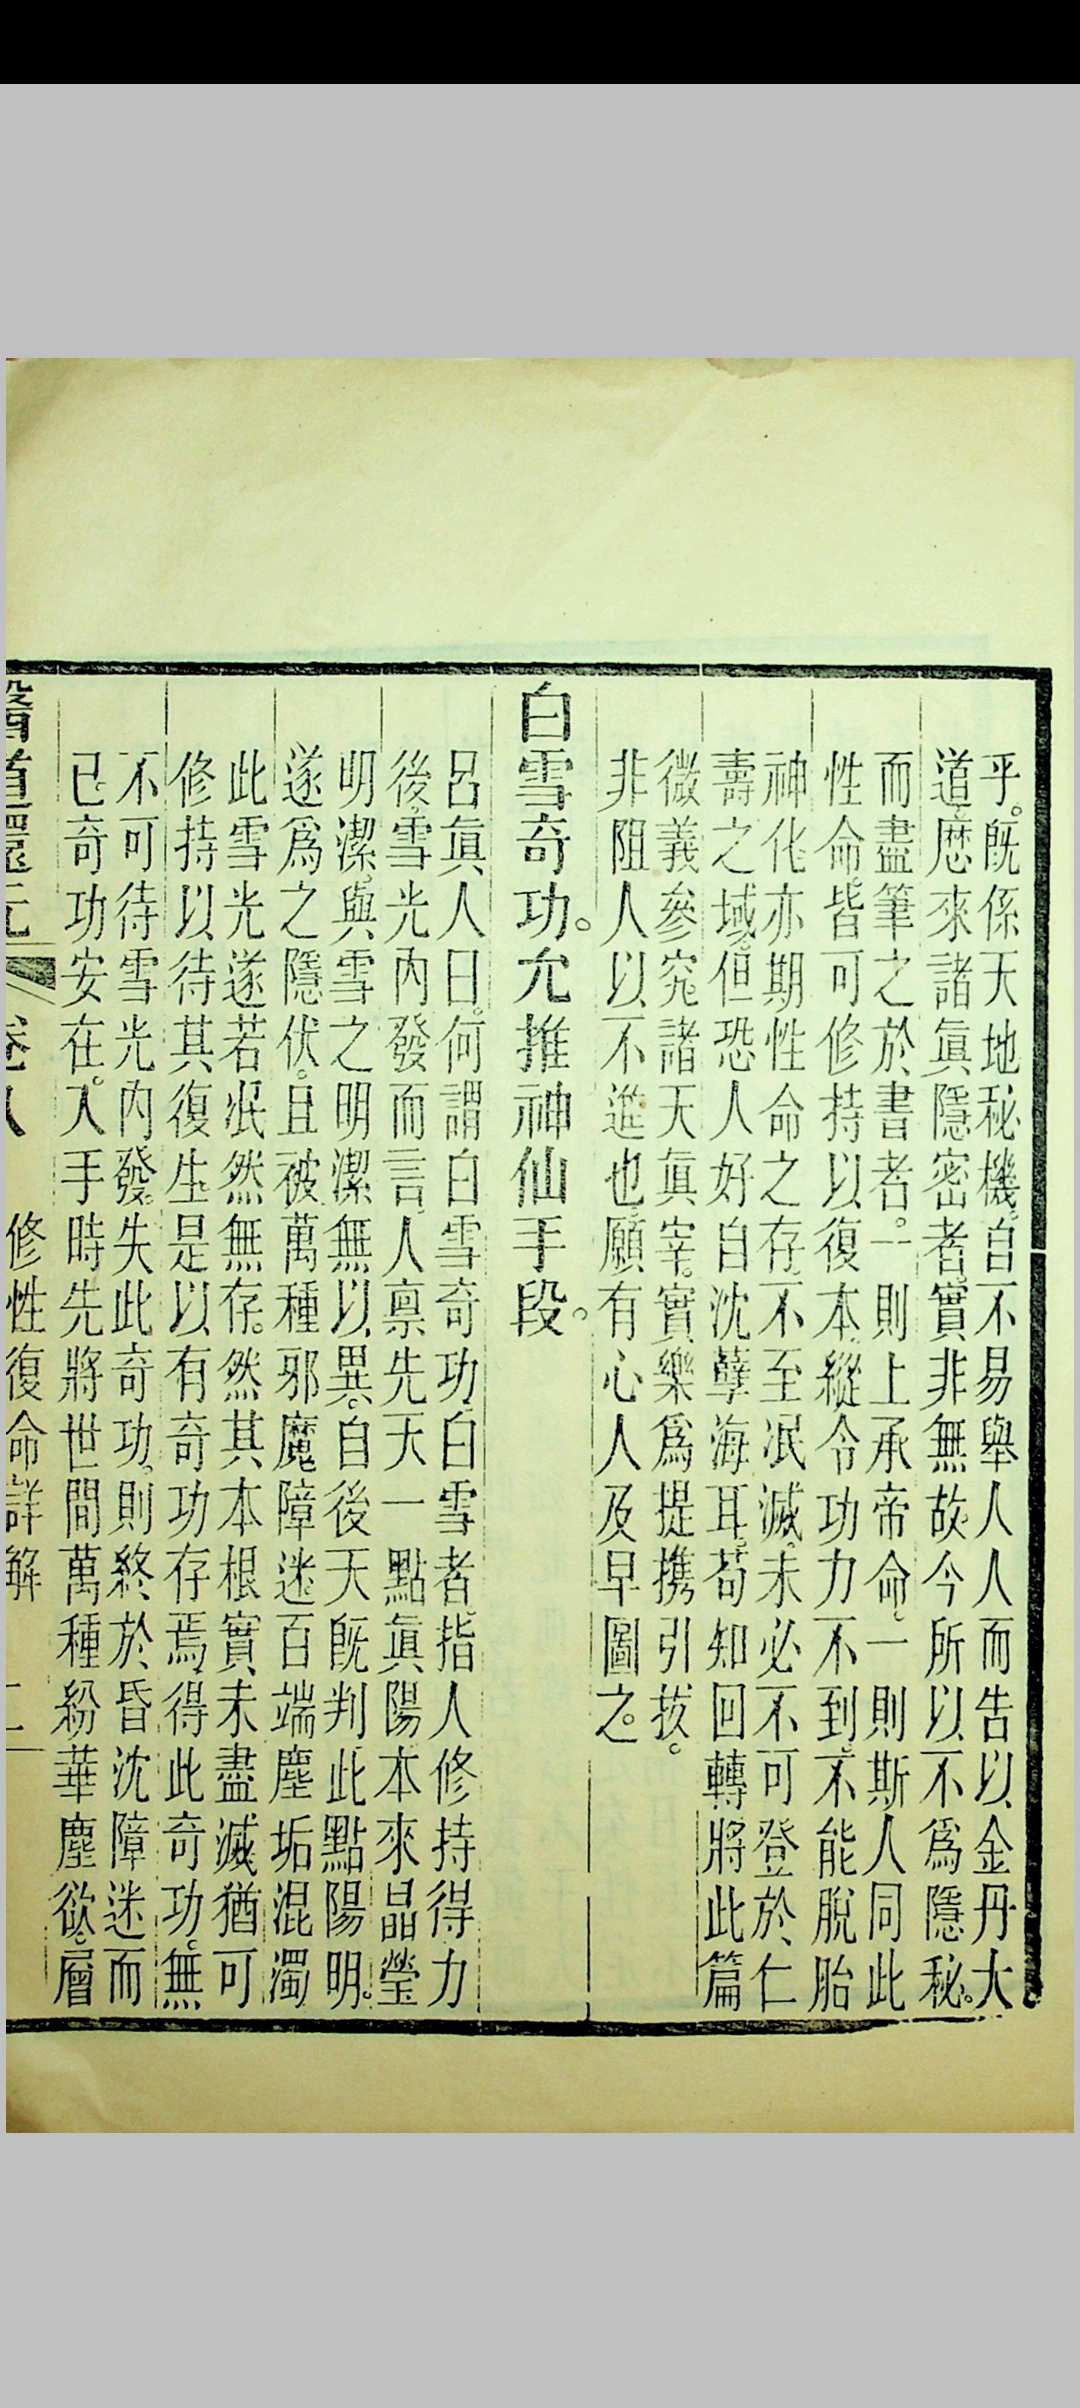 乎。既係天地秘機。自不易舉人人而告以金丹大
道。歷來諸眞隱密者。實非無故。今所以不爲隱秘。
而盡筆之於書者。一則上承帝命。一則斯人同此
性命。皆可修持以復本。縱令功力不到。不能脫胎
神化。亦期性命之存。不至泯滅。未必不可登於仁
壽之域。但恐人好自沈孽海耳。苟知回轉。將此篇
微義參究。諸天眞宰。實樂爲提携引拔。
非阻人以不進也。願有心人及早圖之。
白雪奇功。允推神仙手段。
呂眞人曰。何謂白雪奇功。白雪者。指人修持得力
後。雪光內發而言。人禀先天一點眞陽。本來晶瑩
明潔。與雪之明潔無以異。自後天既判。此點陽明。
遂爲之隱伏。且被萬種邪魔障迷。百端塵垢混濁。
此雪光遂若泯然無存。然其本根實未盡滅。猶可
修持以待其復生。是以有奇功存焉。得此奇功。無
不可待雪光內發。失此奇功。則終於昏沈障迷而
已。奇功安在。入手時先將世間萬種紛華塵欲。層
醫道還元 卷八 修性復命詳解 二